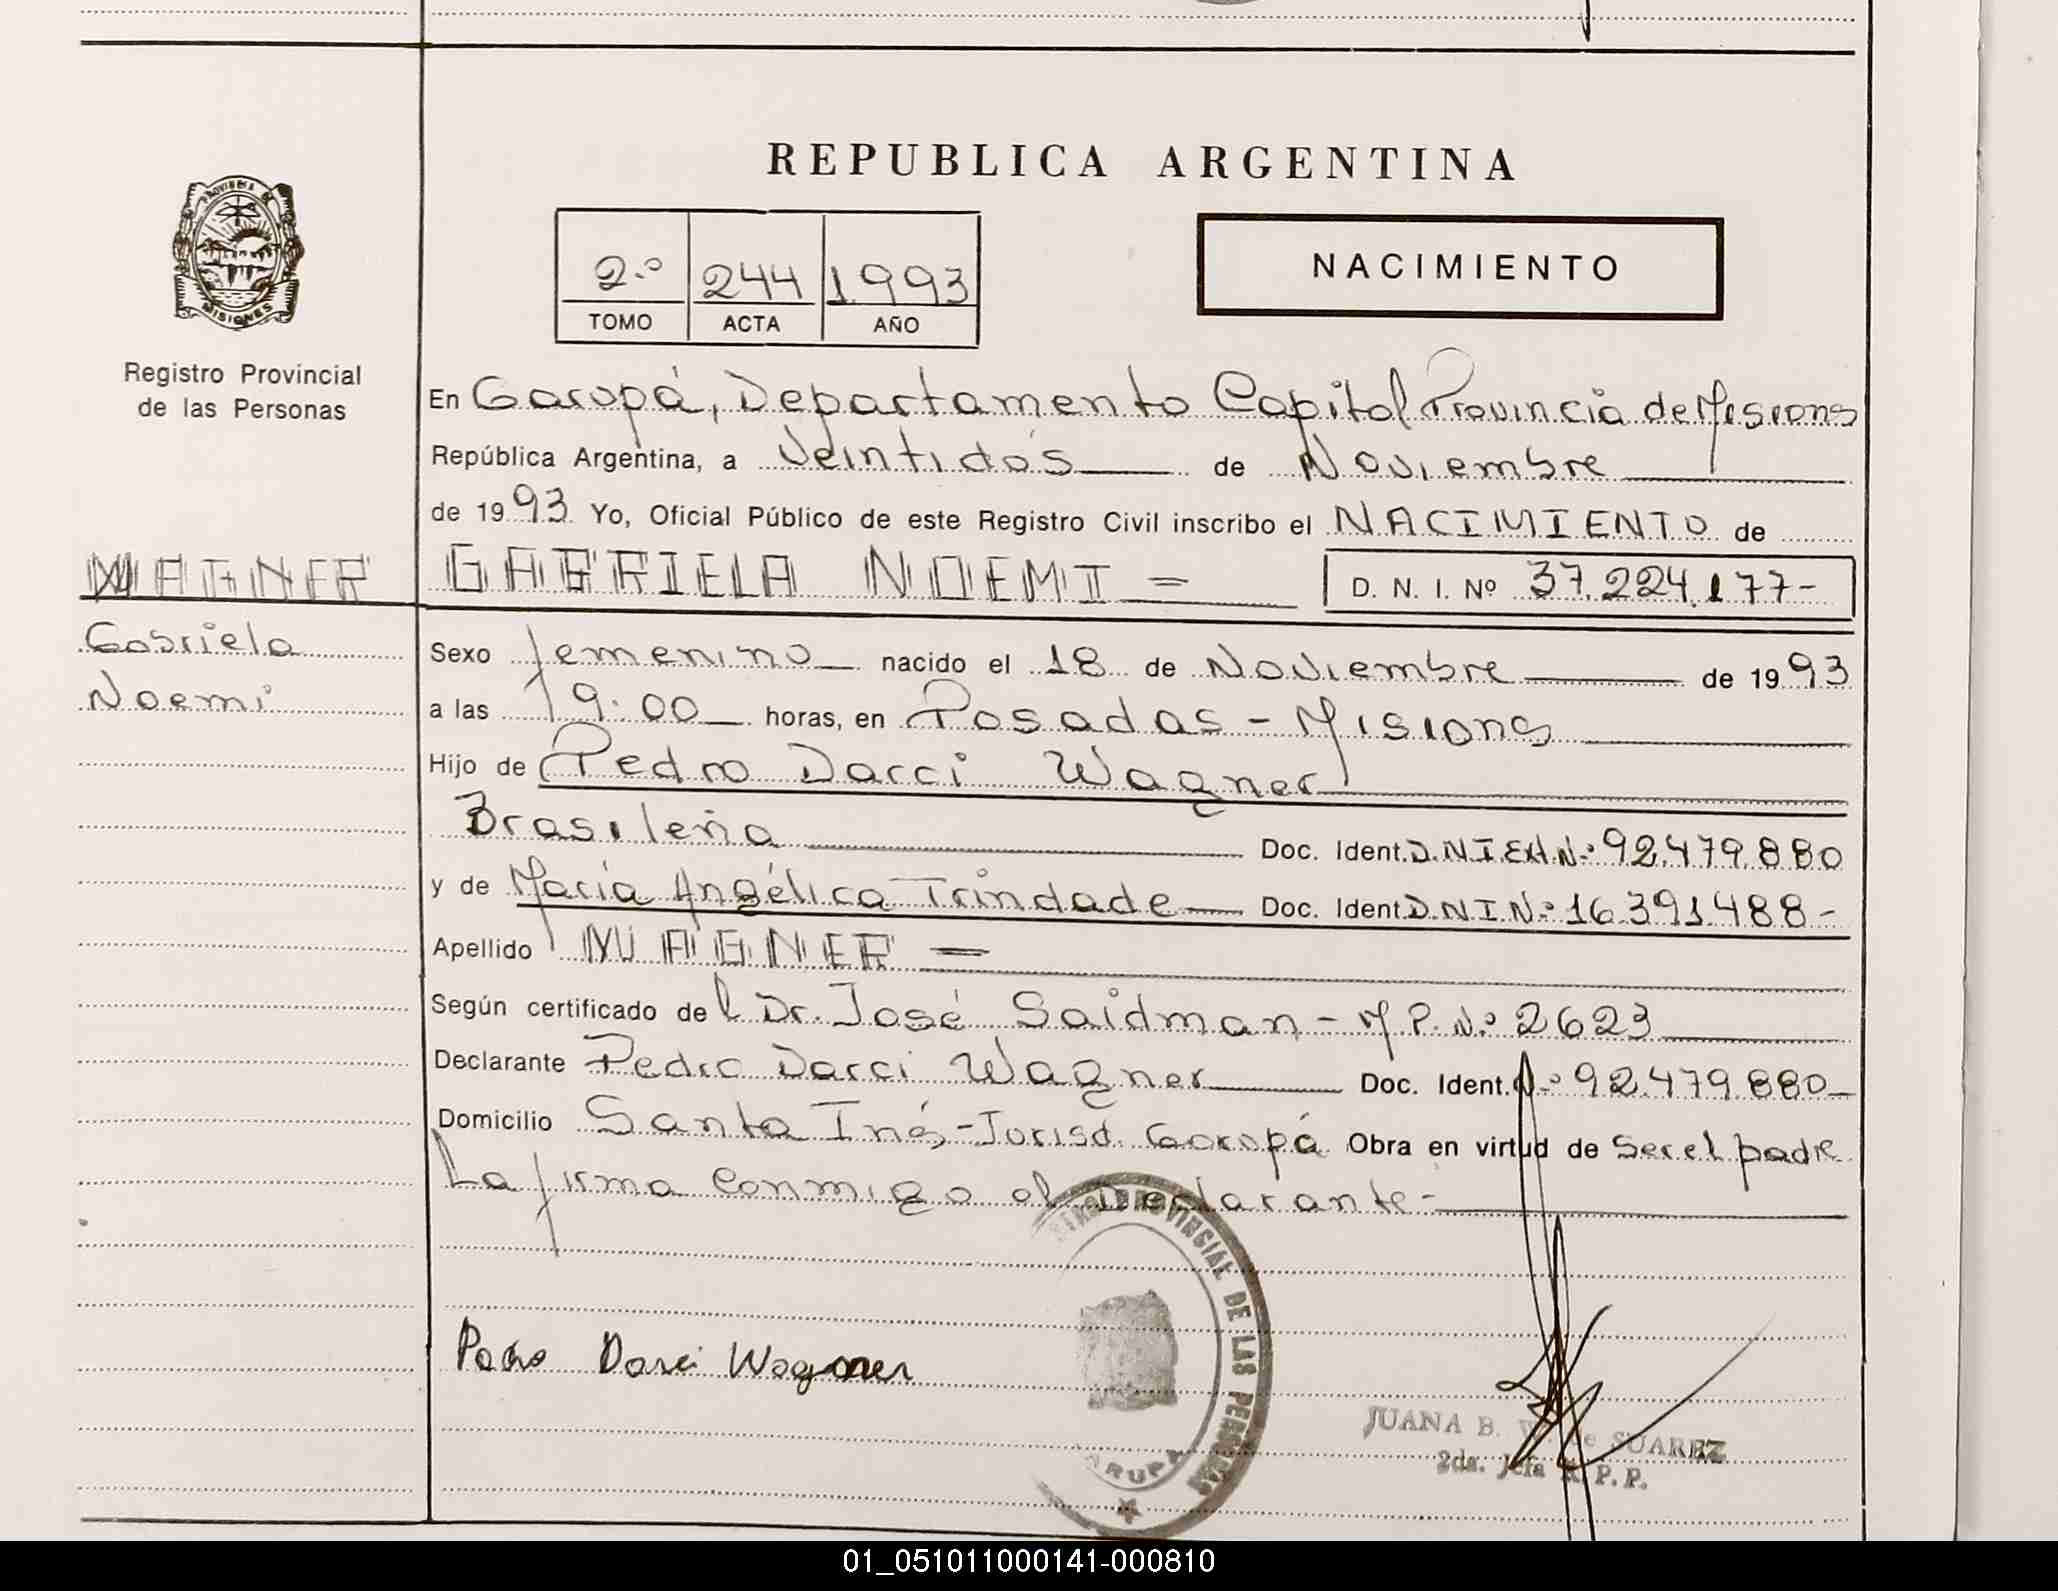 REPUBLICA ARGENTINA
PROVINCIA DE
MISIONES
Registro Provincial
de las Personas
2.º 244 1993
TOMO ACTA AÑO
NACIMIENTO
En Garupá, Departamento Capital Provincia de Misiones
República Argentina, a Veintidós de Noviembre
de 1993 Yo, Oficial Público de este Registro Civil inscribo el NACIMIENTO de
WAGNER
GABRIELA NOEMI = D. N. I. Nº 37.224.177-
Gabriela
Noemi
Sexo femenino nacido el 18 de Noviembre de 1993
a las 19:00 horas, en Posadas - Misiones
Hijo de Pedro Darci Wagner
Brasileña Doc. Ident. D.N.I.Ext.N.º 92.479.880
y de María Angélica Trindade Doc. Ident. D.N.I N.º 16.391.488-
Apellido WAGNER =
Según certificado del Dr. José Saidman - M.P.N.º 2623
Declarante Pedro Darci Wagner Doc. Ident. N.º 92.479.880
Domicilio Santa Inés - Jurisd. Garupá Obra en virtud de Ser el padre
La firma conmigo el Declarante-
PROVINCIAL DE LAS PERSONAS
Darci Wagner
JUANA B. W. de SUAREZ
2da. Jefa R. P. P.
01_051011000141-000810